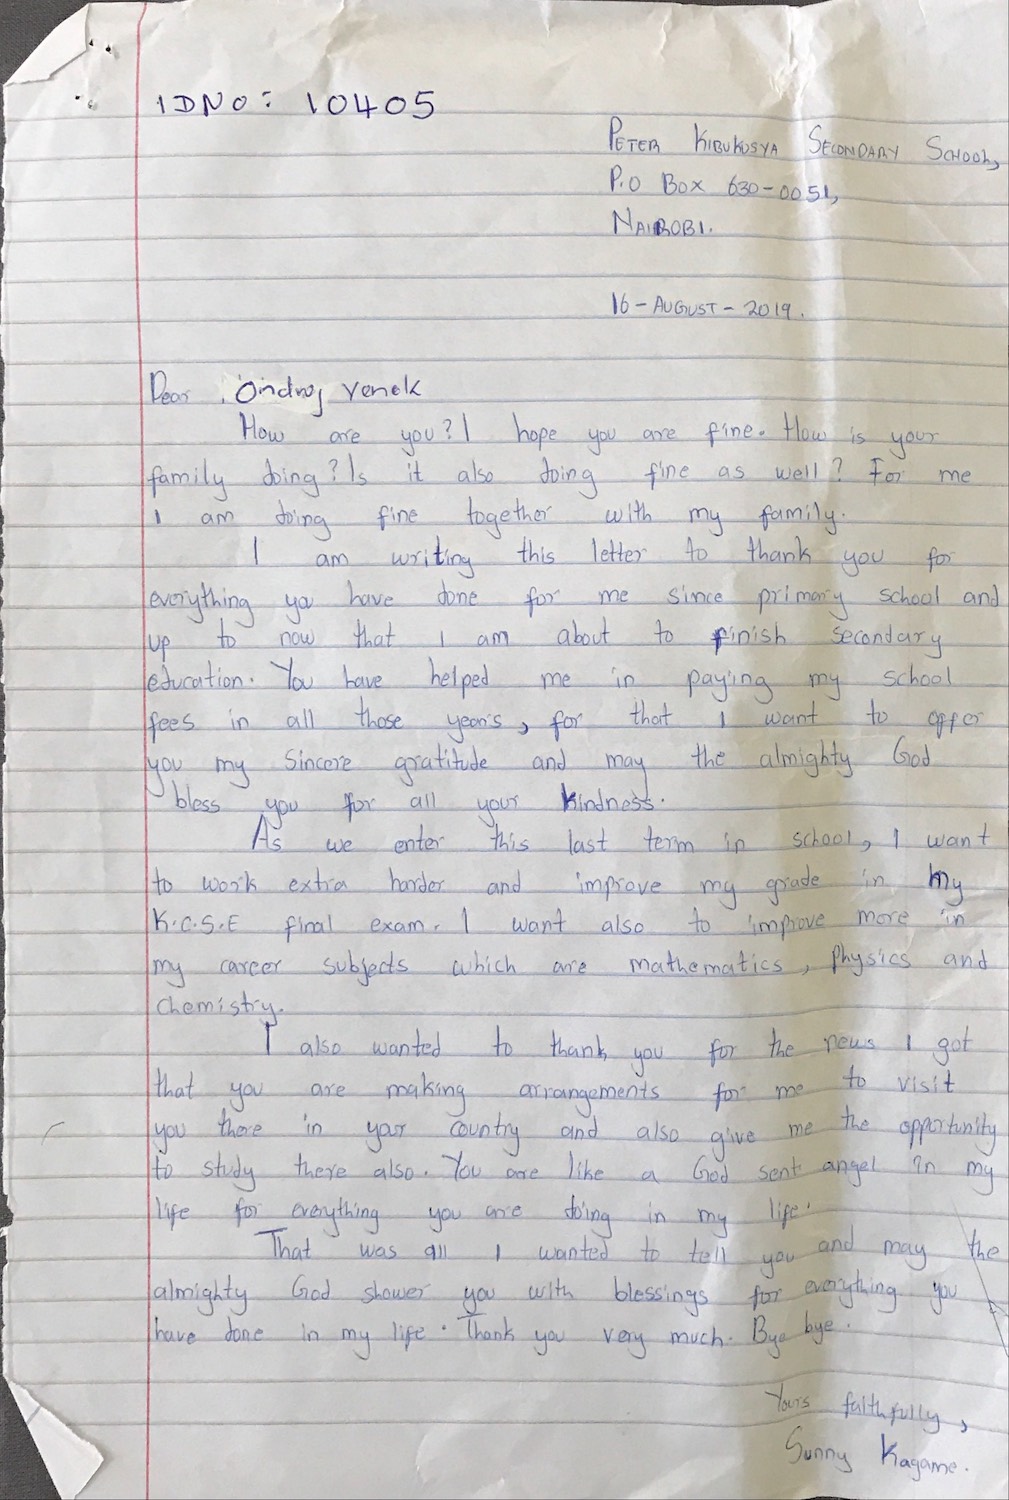 IDNO: 10405
PETER KIBUKUSYA SECONDARY SCHOOL,
P.O BOX 630-0051,
NAIROBI.
16-AUGUST-2019.
Dear Ondrej Venek
How are you? I hope you are fine. How is your
family doing? Is it also doing fine as well? For me
I am doing fine together with my family.
I am writing this letter to thank you for
everything you have done for me since primary school and
up to now that I am about to finish secondary
education. You have helped me in paying my school
fees in all those years, for that I want to offer
you my sincere gratitude and may the almighty God
bless you for all your kindness.
As we enter this last term in school, I want
to work extra harder and improve my grade in my
K.C.S.E final exam. I want also to improve more in
my career subjects which are mathematics, physics and
chemistry.
I also wanted to thank you for the news I got
that you are making arrangements for me to visit
you there in your country and also give me the opportunity
to study there also. You are like a God sent angel in my
life for everything you are doing in my life.
That was all I wanted to tell you and may the
almighty God shower you with blessings for everything you
have done in my life. Thank you very much. Bye bye.
Yours faithfully,
Sunny Kagame.